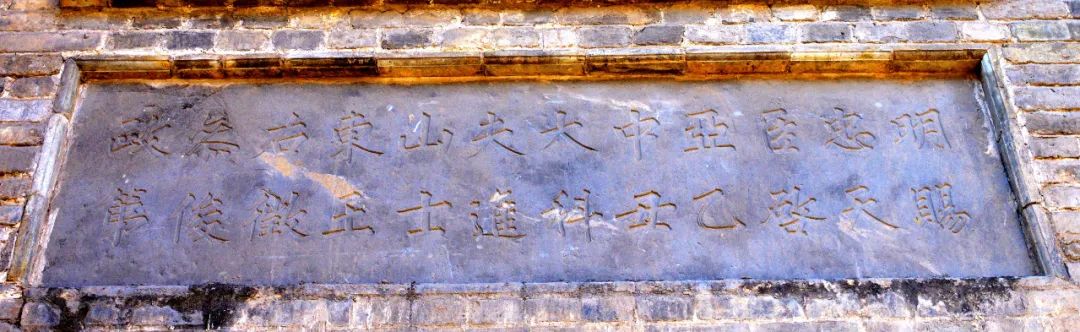 明忠臣亞中大夫山東右叅政
賜天啓乙丑科進士王徵俊第